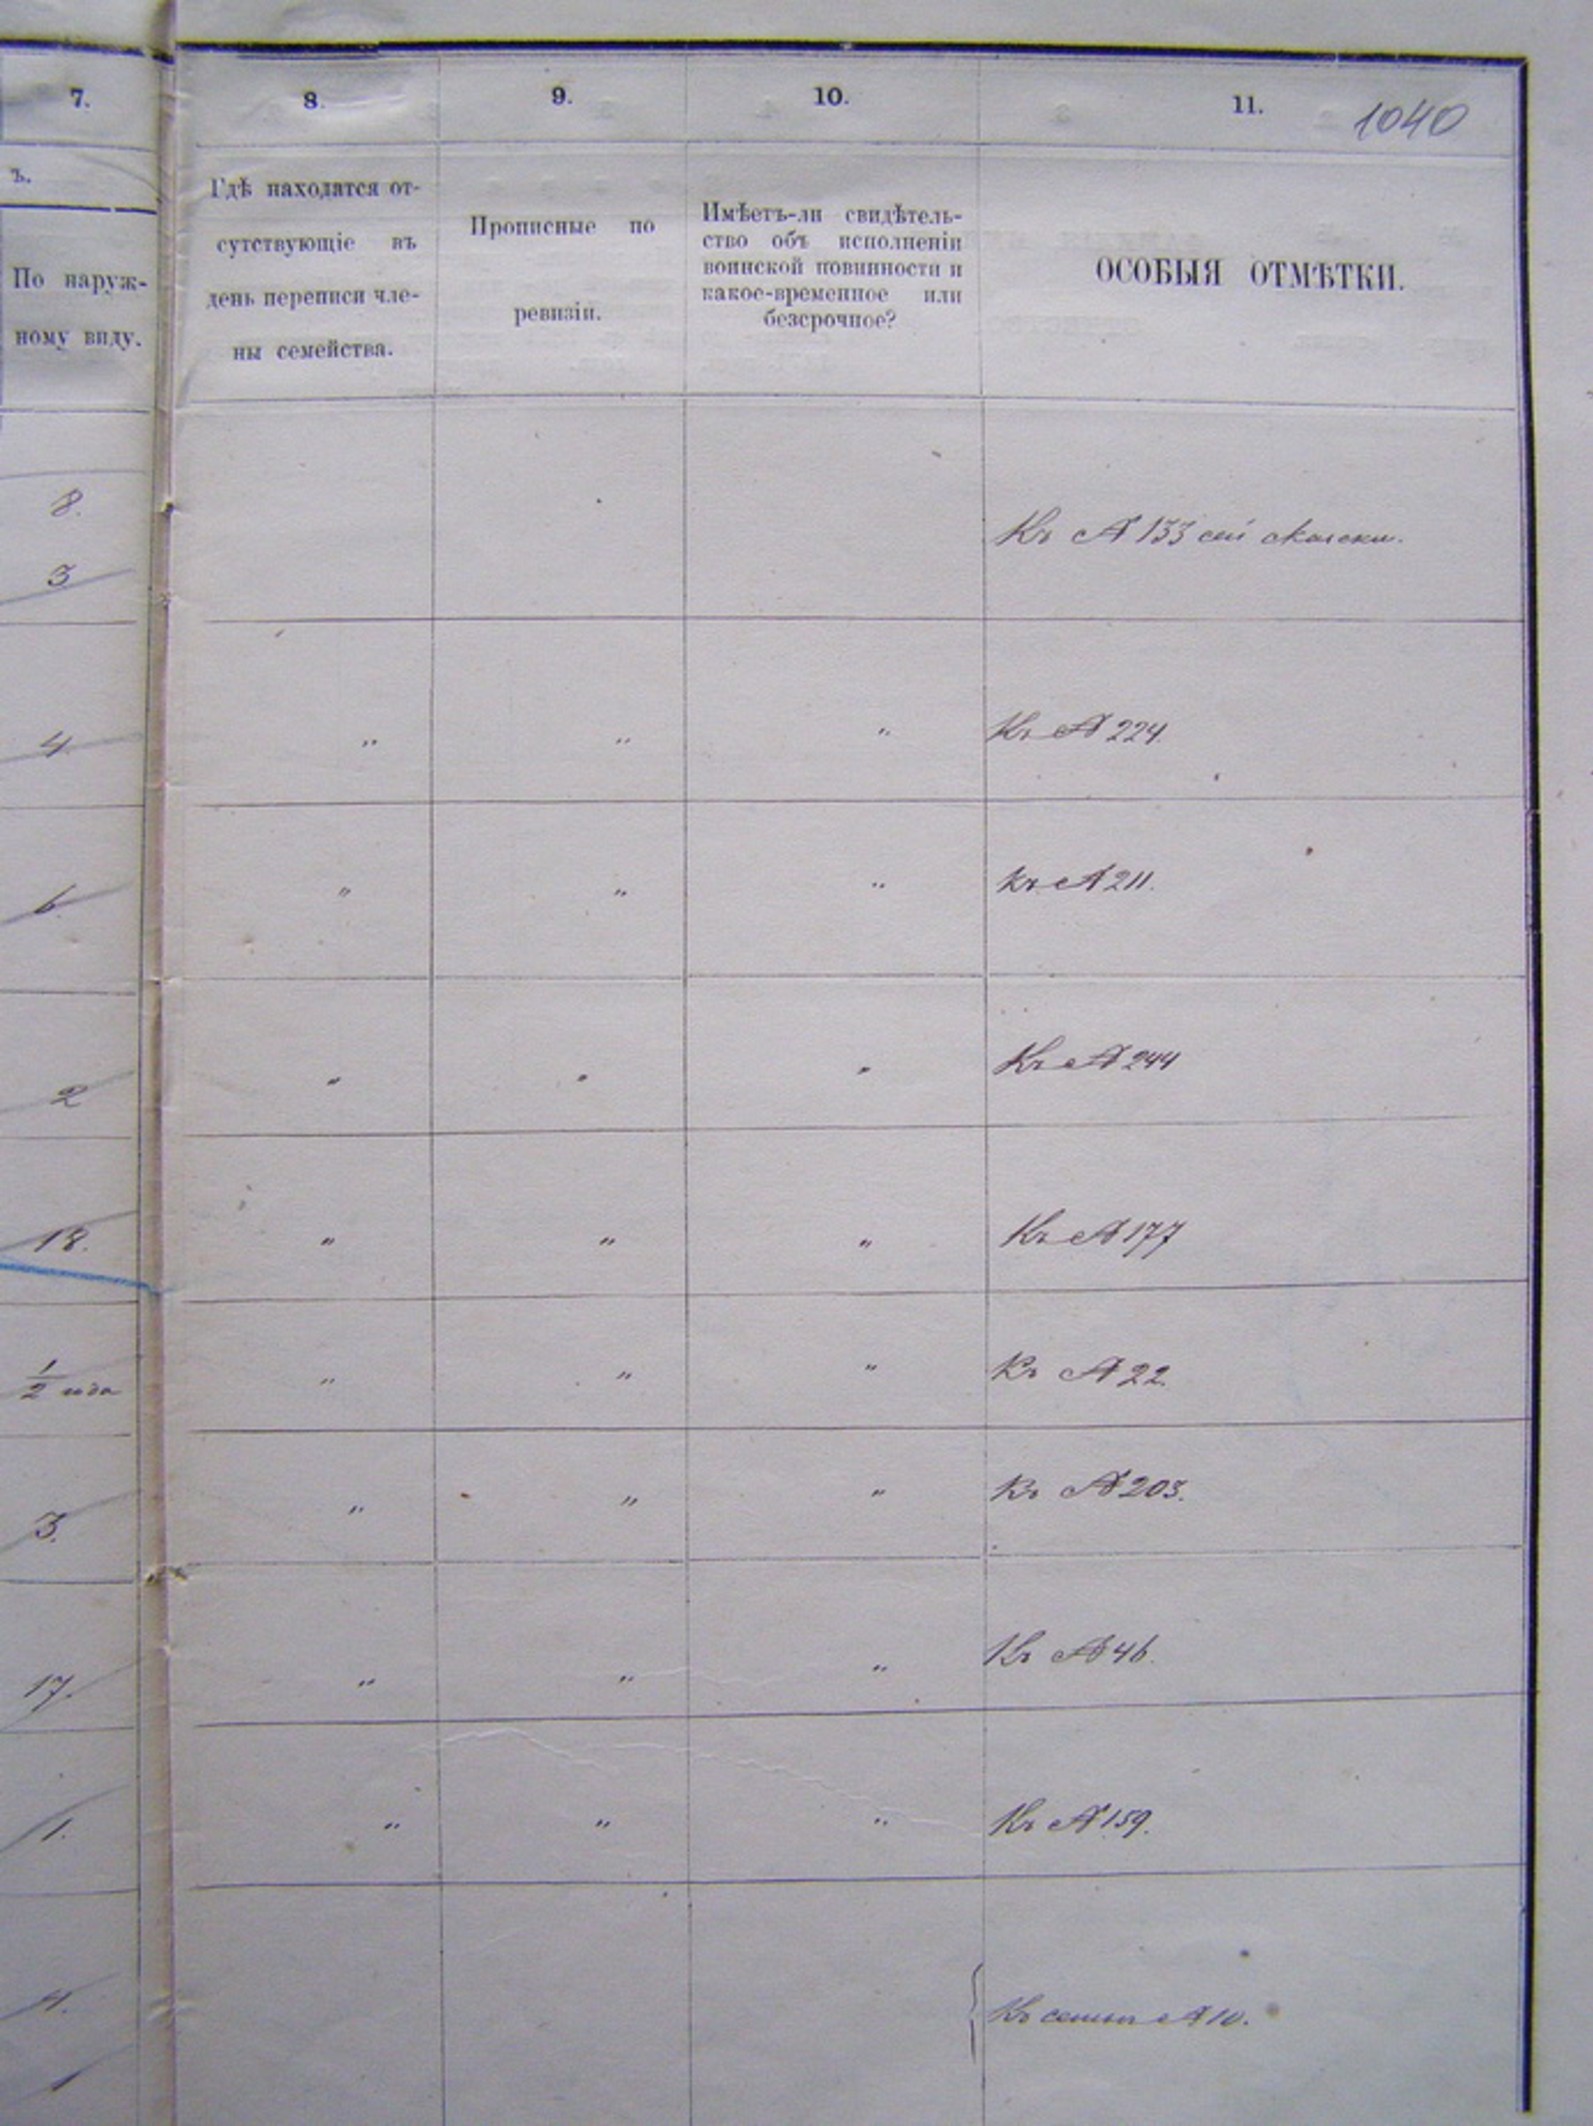 7. 8. 9. 10. 11. 1040
ъ.
По наруж-
ному виду.
Гдѣ находятся от-
сутствующіе въ
день переписи чле-
ны семейства.
Прописные по
ревизіи.
Имѣетъ-ли свидѣтель-
ство объ исполненіи
воинской повинности и
какое-временное или
безсрочное?
ОСОБЫЯ ОТМѢТКИ.
8.
3
Къ № 133 сей
4 " " " Къ № 224.
6 " " " къ № 211.
2 " " " Къ № 244
18. " " " Къ № 177
1/2 года " " " Къ № 22.
3. " " " Къ № 203.
17. " " " Къ № 46.
1. " " " Къ № 159.
4.
Къ семьѣ № 10.
1